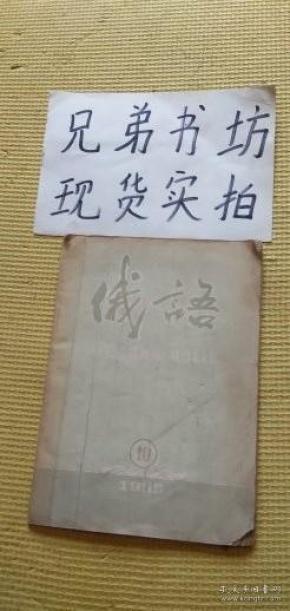 兄弟书坊
现货实拍
俄語
10
孔夫子旧书网
www.kongfz.com